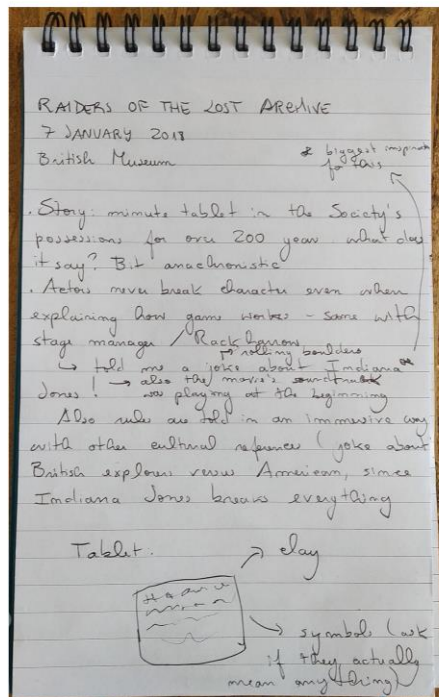 RAIDERS OF THE LOST ARCHIVE
7 JANUARY 2018
British Museum
& biggest inspiration
for this
. Story: minute tablet in the Society's
possessions for over 200 year what does
it say? Bit anachronistic
. Actors never break character even when
explaining how game works - same with
stage manager / Rackharrow
rolling boulders
→ told me a joke about Indiana
Jones! → also the movie's soundtrack
was playing at the beginning
Also rules are told in an immersive way
with other cultural reference (joke about
British explorers versus American, since
Indiana Jones breaks everything
Tablet:
clay
symbols (ask
if they actually
mean anything)